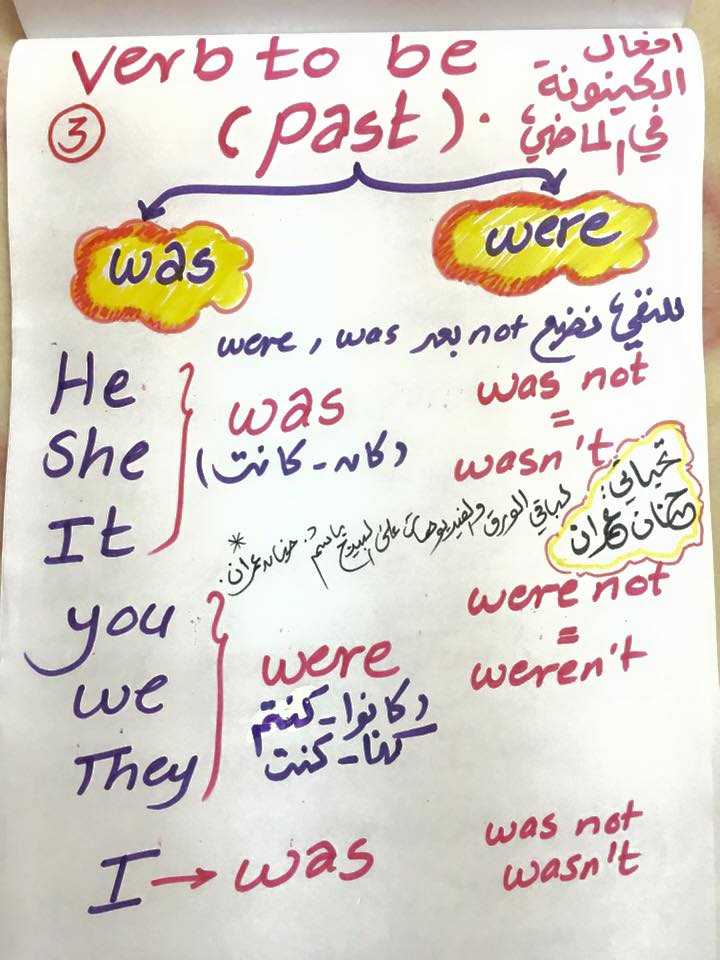 verb to be
افعال
الكينونة
3
(past).
في الماضي
was
were
للنفي نضع not بعد was , were
He
She
It
was
(كان - كانت)
was not
=
wasn't
تحياتي:
حنان عمران
* لباقي الورق والفيديوهات على البيدج باسم: حنان عمران.
you
we
They
were
(كانوا - كنتم
كنا - كنت
were not
=
weren't
I → was
was not
wasn't